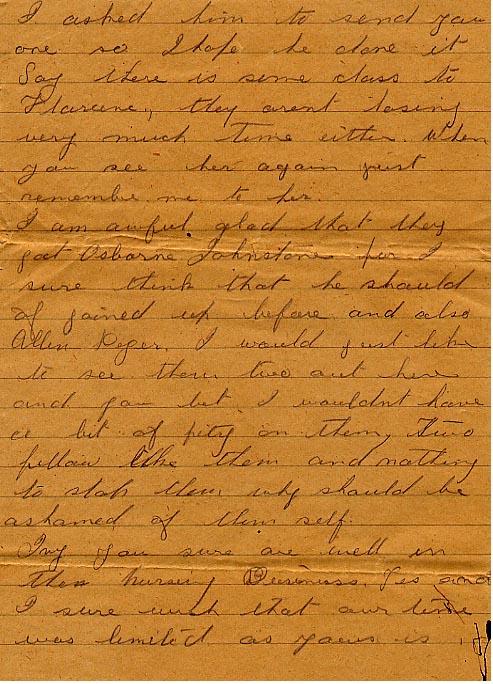 I asked him to send you
one so I hope he done it
Say there is some class to
Florence, they arent losing
very much time either. when
you see her again just
remember me to her.
I am awful glad that they
got Osborne Johnstone for I
sure think that he should
of joined up before and also
Allen Roger. I would just like
to see them two out here
and you bet I wouldnt have
a bit of pity on them, two
fellow like them and nothing
to stop them why should be
ashamed of them self.
Ivy you sure are well in
the nursing Business. Yes and
I sure wish that our time
was limited as yours is,